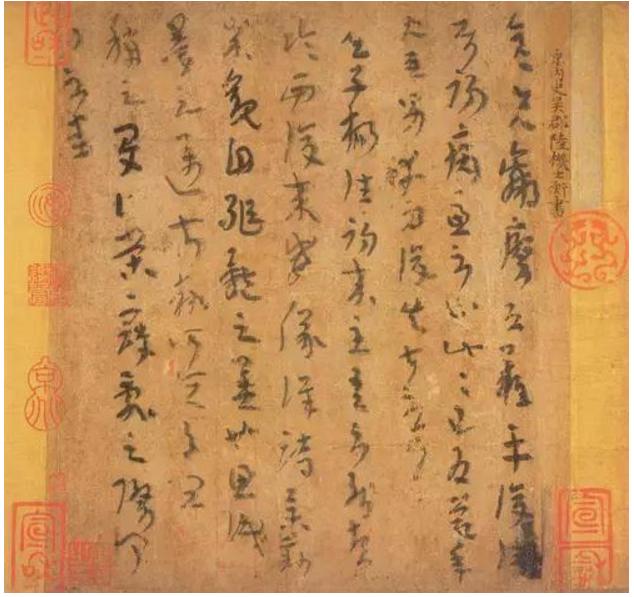 内史吳郡陸機士衡書
彦先羸瘵恐難平復往屬
初病慮不止此此已為慶承
使唯男幸為復失前憂耳
吳子楊往初來主吾不能盡
臨西復來威儀詳跱舉動
成觀自軀體之美也思識
量之邁前執所恒有宜
稱之夏伯榮寇亂之際聞
問不悉